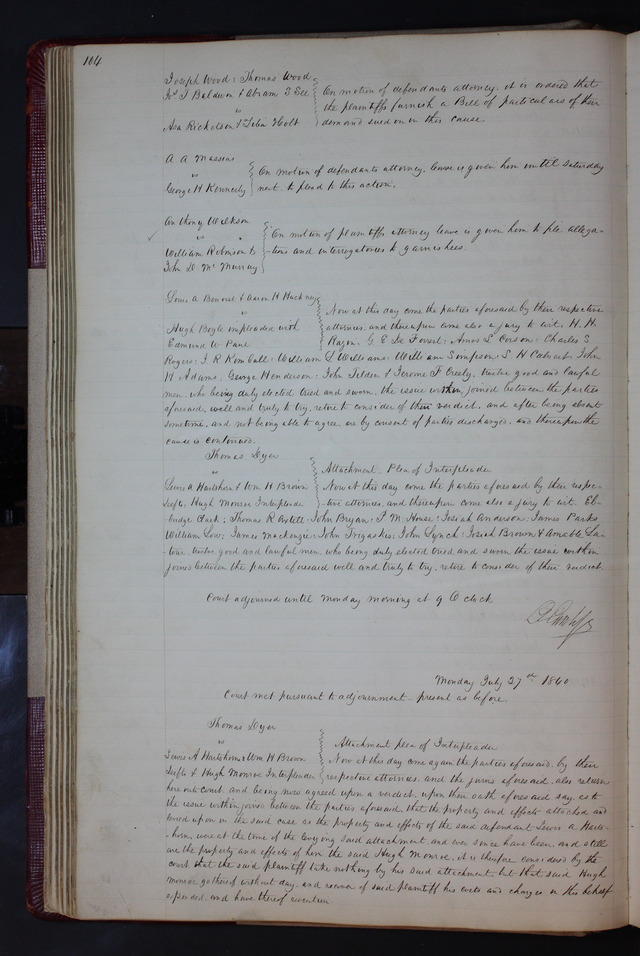 104
Joseph Wood & Thomas Wood
Jos T Baldwin & Abram S See } On motion of defendants attorney, it is ordered that
vs the plaintiffs furnish a Bill of particulars of their
Asa Richolson & John Holt demand sued on in this cause.
A A Massias
vs } On motion of defendants attorney, leave is given him until Saturday
George H Kennerly next to plead to this action.
Anthony Wilkson
vs } On motion of plaintiffs attorney leave is given him to file allega-
William Robinson & -tions and interrogatories to garnishees.
John D McMurray
Louis A Benoist & Aaron H Hackney
vs } Now at this day come the parties aforesaid by their respective
Hugh Boyle impleaded with attornies, and thereupon come also a jury to wit, H. H.
Edmund W Paul Razon, G E De Forrest, Amos L Corson, Charles S
Rogers, J R Kimball, William L Williams, William Simpson, S H Calvert, John
W Adams, George Henderson, John Tilden & Jerome F Creely, twelve good and lawful
men, who being duly elected tried and sworn, the issue within joined between the parties
aforesaid, well and truly to try, retire to consider of their verdict, and after being absent
sometime, and not being able to agree, are by consent of parties discharged, and thereupon the
cause is continued.
Thomas Dyer
vs } Attachment - Plea of Interpleader
Lewis A Hartshorn & Wm H Brown Now at this day come the parties aforesaid by their respec-
Defts, Hugh Monroe Interpleader -tive attornies, and thereupon come also a jury to wit El-
bridge Clark, Thomas R, John Bryan, F. M. House, Josiah Anderson, James Parks
William Low, James Mackenzie, John Tregaskis, John Lynch, Josiah Brown & Amable La-
tour, twelve good and lawful men, who being duly elected tried and sworn the issue within
joined between the parties aforesaid well and truly to try, retire to consider of their verdict
Court adjourned until Monday morning at 9 O'clock
Monday July 27th 1840
Court met pursuant to adjournment - present as before.
Thomas Dyer
vs } Attachment plea of Interpleader
Lewis A Hartshorn & Wm H Brown Now at this day come again the parties aforesaid, by their
Defts & Hugh Monroe Interpleader respective attornies, and the jurors aforesaid, also return
here into court, and being now agreed upon a verdict, upon their oath aforesaid say, as to
the issue within joined between the parties aforesaid, that the property and effects attached and
levied upon in the said case as the property and effects of the said defendant Lewis A Harts-
-horn, were at the time of the levying said attachment, and ever since have been, and still
are the property and effects of him the said Hugh Monroe, it is therefore considered by the
court that the said plaintiff take nothing by his said attachment, but that said Hugh
Monroe go thereof without day, and recover of said plaintiff his costs and charges in this behalf
expended and have thereof execution.